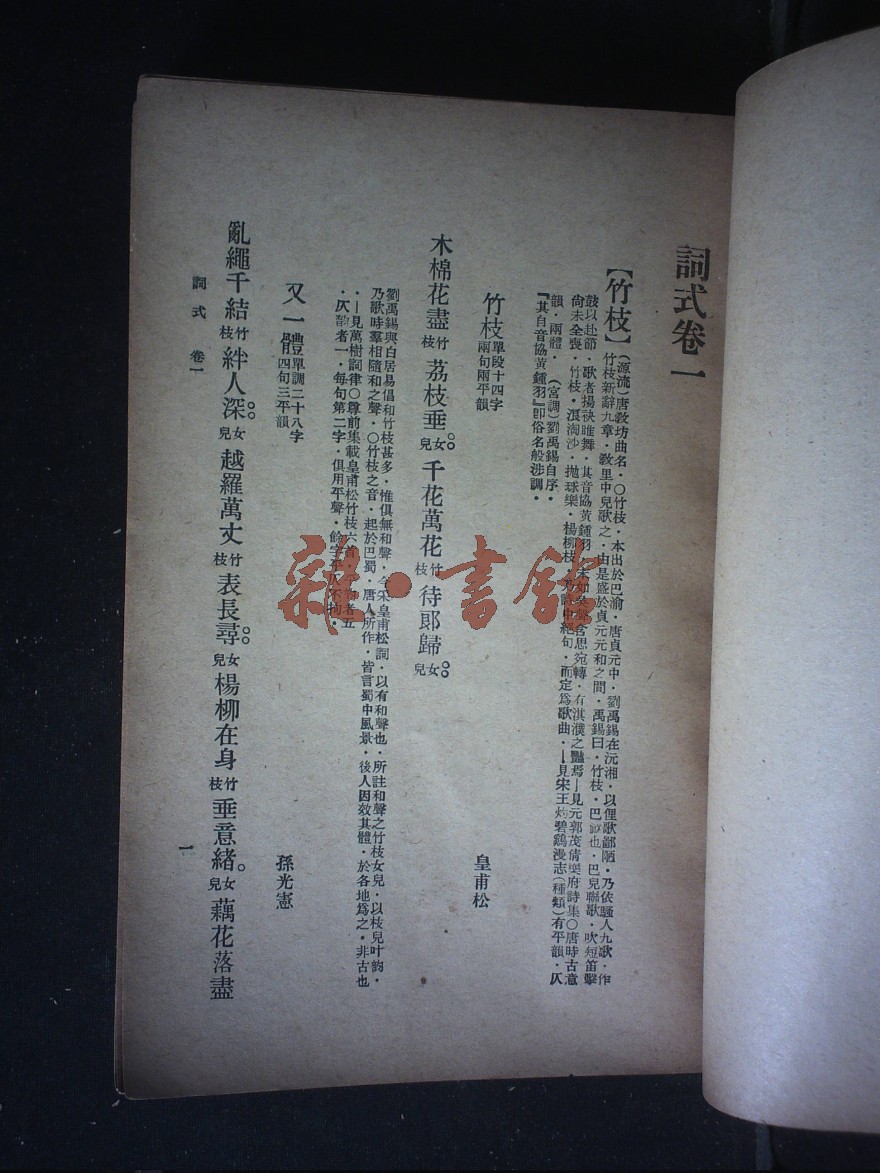 詞式卷一
【竹枝】(源流)唐敎坊曲名・〇竹枝・本出於巴渝・唐貞元中・劉禹錫在沅湘・以俚歌鄙陋・乃依騷人九歌・作
竹枝新辭九章・敎里中兒歌之・由是盛於貞元元和之間・禹錫曰・竹枝・巴歈也・巴兒聯歌・吹短笛擊
鼓以赴節・歌者揚袂睢舞・其音協黃鍾羽・末如吳聲含思宛轉・有淇濮之豔焉—見元郭茂倩樂府詩集〇唐時古意
尙未全喪・竹枝・浪淘沙・拋球樂・楊柳枝・乃詩中絕句・而定爲歌曲・—見宋王灼碧鷄漫志(種類)有平韻・仄
韻・兩體・(宮調)劉禹錫自序・
『其自音協黃鍾羽』卽俗名般涉調・
竹枝 單段十四字 兩句兩平韻 皇甫松
木棉花盡竹枝荔枝垂女兒千花萬花竹枝待郞歸女兒
劉禹錫與白居易倡和竹枝甚多・惟俱無和聲・今宋皇甫松詞・以有和聲也・所註和聲之竹枝女兒・以枝兒叶韵・
乃歌時羣相隨和之聲・〇竹枝之音・起於巴蜀・唐人所作・皆言蜀中風景・後人因效其體・於各地爲之・非古也
・—見萬樹詞律〇尊前集載皇甫松竹枝六首・者五
・仄韵者一・每句第二字・俱用平聲・餘字平仄不拘・
又一體 單調二十八字 四句三平韻 孫光憲
亂繩千結竹枝絆人深女兒越羅萬丈竹枝表長尋女兒楊柳在身竹枝垂意緒女兒藕花落盡
詞式 卷一 一
雜・書館